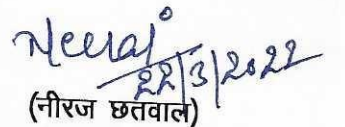 Neeraj
22/3/2022
(नीरज छतवाल)